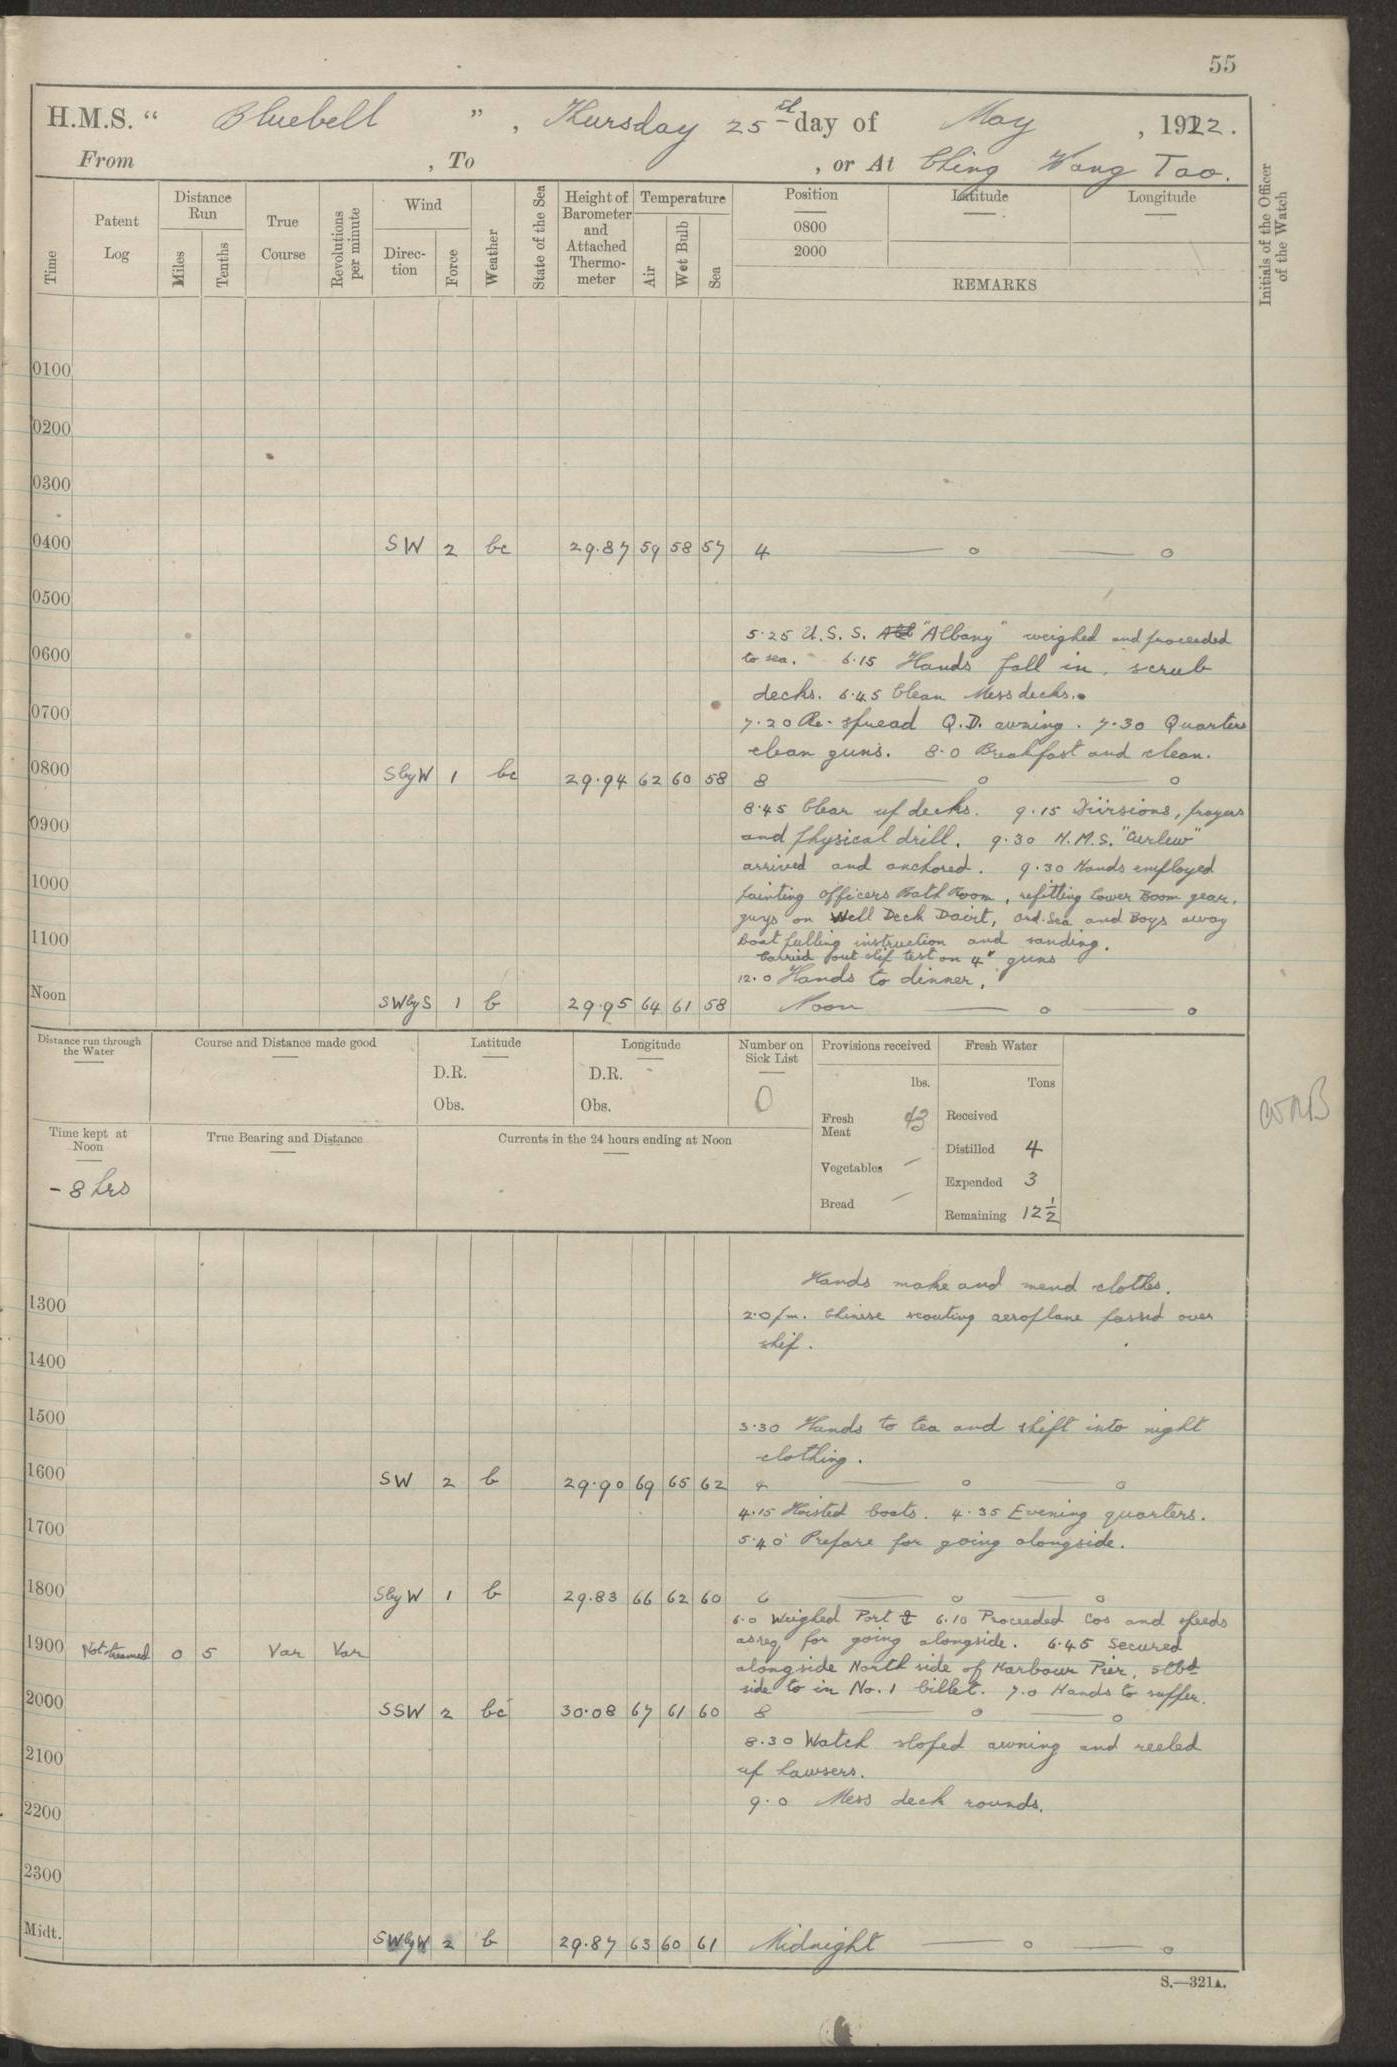 55
H.M.S. " Bluebell ", Thursday 25th day of May, 1922.
From , To , or At Ching Wang Tao.
Time
Patent Log
Distance Run
Miles
Tenths
True Course
Revolutions per minute
Wind
Direction
Force
Weather
State of the Sea
Height of Barometer and Attached Thermometer
Temperature
Air
Wet Bulb
Sea
Position
Latitude
Longitude
0800
2000
REMARKS
Initials of the Officer of the Watch
0100
0200
0300
0400 SW 2 bc 29.87 59 58 57 4 — o — o
0500
5.25 U.S.S. "Albany" weighed and proceeded
0600
to sea. 6.15 Hands fall in, scrub
decks. 6.45 Clean Mess decks.
0700
7.20 Re-spread Q.D. awning. 7.30 Quarters
clean guns. 8.0 Breakfast and clean.
0800 SbyW 1 bc 29.94 62 60 58 8 — o — o
8.45 Clear up decks. 9.15 Divisions, prayers
0900
and physical drill. 9.30 H.M.S. "Curlew"
arrived and anchored. 9.30 Hands employed
1000
painting Officers Bath Room, refitting Lower Boom gear,
guys on Well Deck Davit, Ord. Sea and Boys away
1100
Boat pulling instruction and sanding.
Carried out slip test on 4" guns
12.0 Hands to dinner.
Noon SWbyS 1 b 29.95 64 61 58 Noon — o — o
Distance run through the Water
Course and Distance made good
Latitude
D.R.
Obs.
Longitude
D.R.
Obs.
Number on Sick List
0
Provisions received
lbs.
Fresh Meat 43
Vegetables —
Bread —
Fresh Water
Tons
Received
Distilled 4
Expended 3
Remaining 12½
Time kept at Noon
- 8 hrs
True Bearing and Distance
Currents in the 24 hours ending at Noon
Hands make and mend clothes.
1300
2.0 p.m. Chinese scouting aeroplane passed over
ship.
1400
1500
3.30 Hands to tea and shift into night
clothing.
1600 SW 2 b 29.90 69 65 62 4 — o o
4.15 Hoisted boats. 4.35 Evening quarters.
1700
5.40 Prepare for going alongside.
1800 SbyW 1 b 29.83 66 62 60 6 — o — o
6.0 Weighed Port ⚓ 6.10 Proceeded Cos and speeds
1900 Not streamed 0 5 Var Var
as req. for going alongside. 6.45 Secured
alongside North side of Harbour Pier, Stbd
side to in No.1 billet. 7.0 Hands to supper.
2000 SSW 2 bc 30.08 67 61 60 8 — o — o
8.30 Watch sloped awning and reeled
2100
up hawsers.
9.0 Mess deck rounds.
2200
2300
Midt. SWbyW 2 b 29.87 63 60 61 Midnight — o — o
S.—321A.